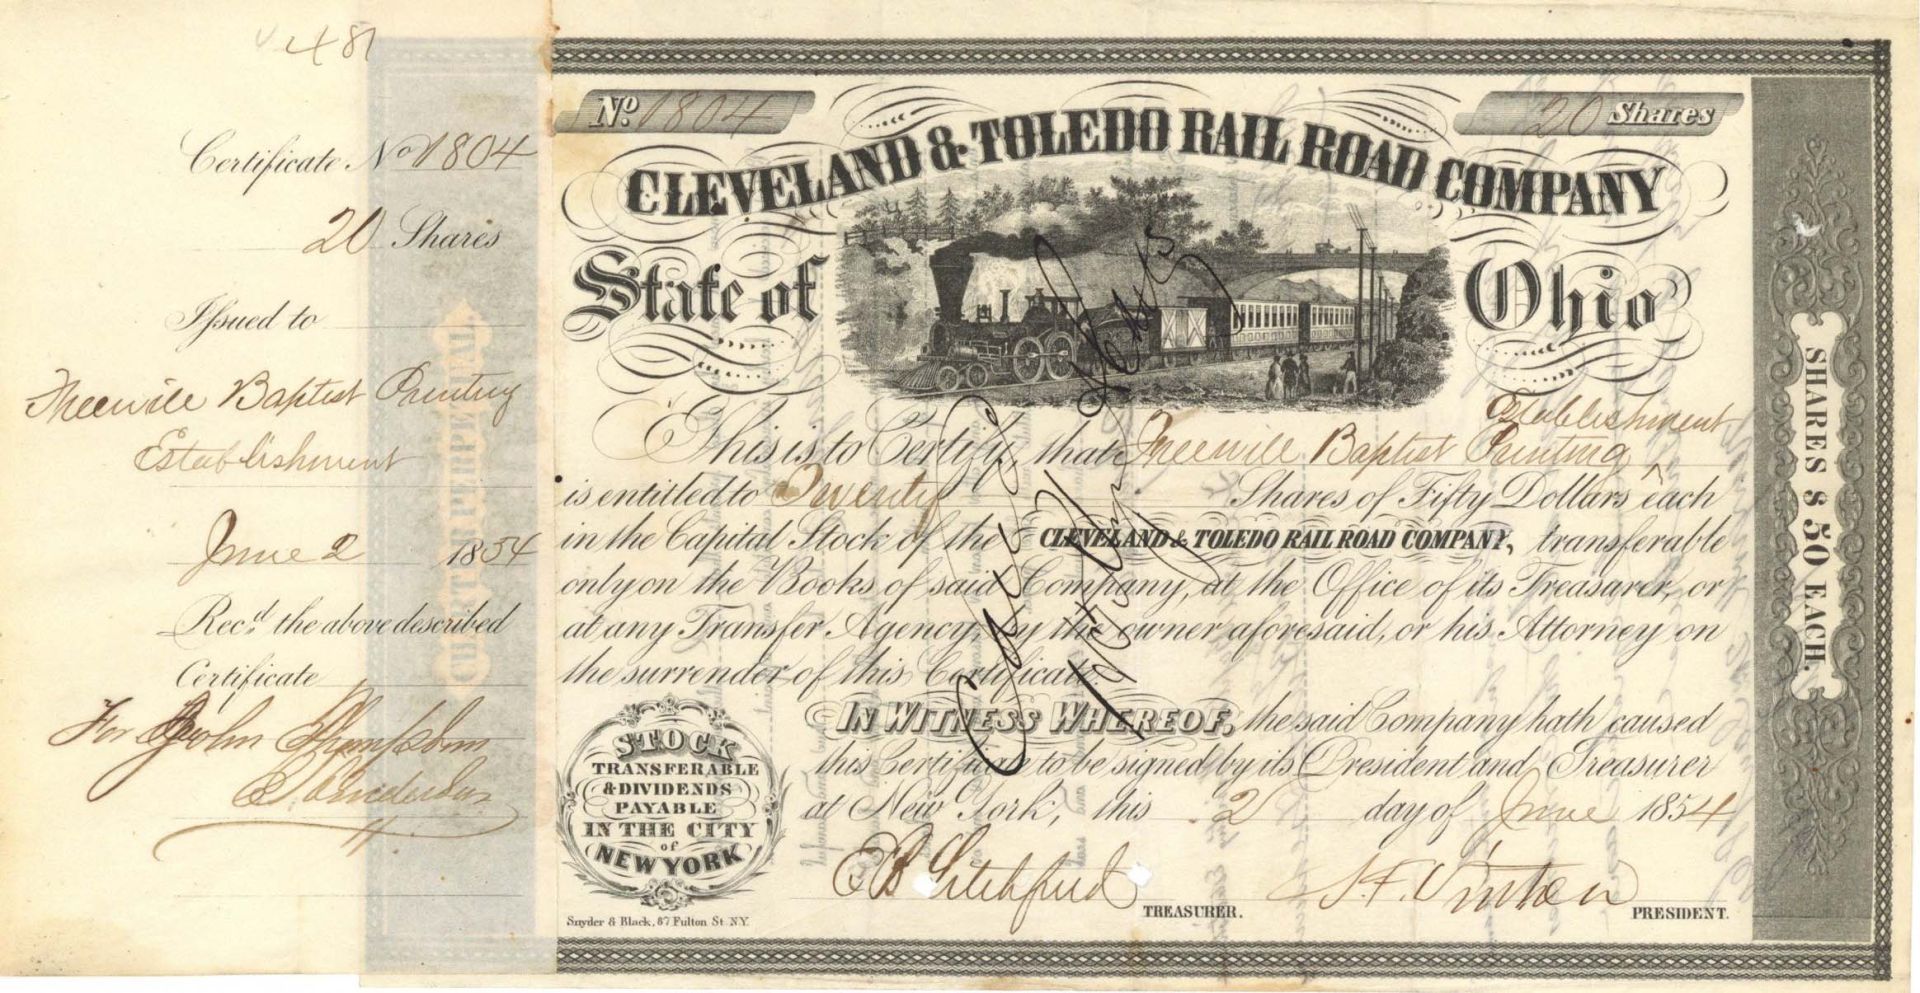 481
Certificate No 1804
20 Shares
Issued to
Freewill Baptist Printing
Establishment
June 2 1854
Rec.d the above described
Certificate
For John Thompson
CHARTER PERPETUAL
No. 1804
20 Shares
CLEVELAND & TOLEDO RAIL ROAD COMPANY
State of Ohio
Establishment
This is to Certify, that Freewill Baptist Printing ^
is entitled to Twenty Shares of Fifty Dollars each
in the Capital Stock of the CLEVELAND & TOLEDO RAIL ROAD COMPANY, transferable
only on the Books of said Company, at the Office of its Treasurer, or
at any Transfer Agency, by the owner aforesaid, or his Attorney on
the surrender of this Certificate.
IN WITNESS WHEREOF, the said Company hath caused
this Certificate to be signed by its President and Treasurer
at New York, this 2 day of June 1854
STOCK
TRANSFERABLE
& DIVIDENDS
PAYABLE
IN THE CITY
of
NEW YORK
E B Litchfield TREASURER.
S. F. Vinton PRESIDENT.
Snyder & Black, 87 Fulton St. N.Y.
SHARES $50 EACH.